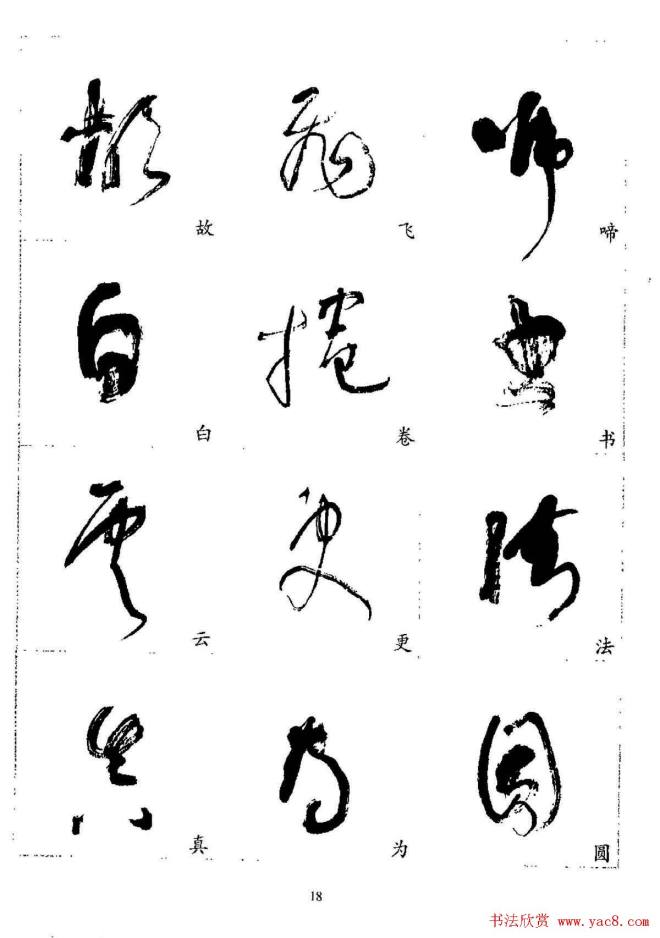 故 飞 啼
白 卷 书
云 更 法
真 为 圆
18
书法欣赏 www.yac8.com